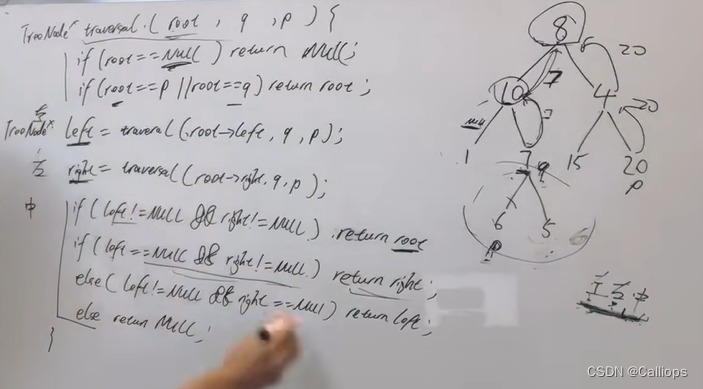 TreeNode* traversal (root, q, p) {
if (root==NULL) return NULL;
if (root==p || root==q) return root;
左
TreeNode* left = traversal (root->left, q, p);
右 right = traversal (root->right, q, p);
中 if (left!=NULL && right!=NULL) return root
if (left==NULL && right!=NULL) return right;
else (left!=NULL && right==NULL) return left;
else return NULL;
}
8
20
7
10
4
20
null
7
1
7
q
15
20
p
6
5
6
p
左 右 中
CSDN @Calliops